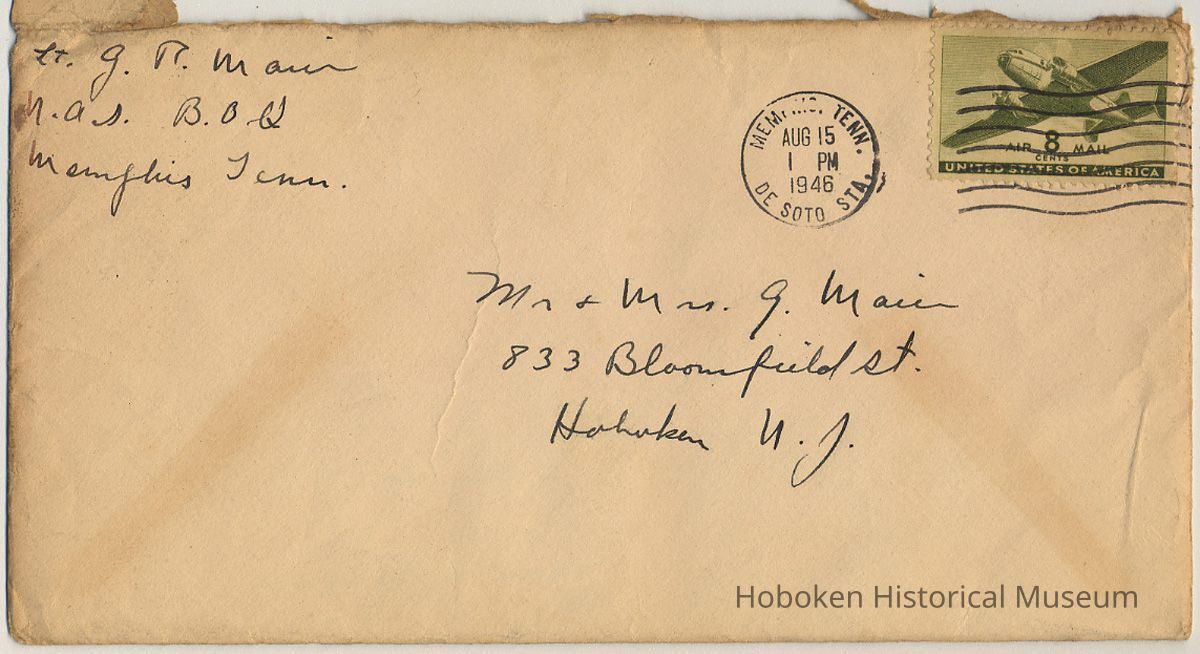 Lt. G. R. Maier
N.A.S. B.O.Q
Memphis Tenn.
MEMPHIS, TENN.
AUG 15
1 PM
1946
DE SOTO STA.
AIR 8 MAIL
CENTS
UNITED STATES OF AMERICA
Mr & Mrs. G. Maier
833 Bloomfield st.
Hoboken N. J.
Hoboken Historical Museum